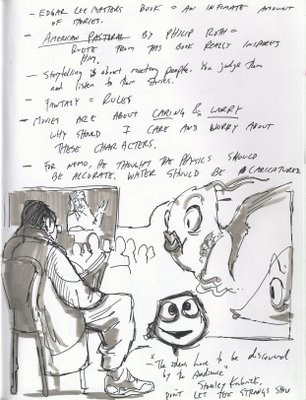 - EDGAR LEE MASTERS BOOK = AN INFINATE AMOUNT
OF STORIES.
- AMERICAN PASTORAL BY PHILIP ROTH =
QUOTE FROM THIS BOOK REALLY INSPIRES
HIM.
- Storytelling is about meeting people. You judge them
and listen to their stories.
- FANTASY = RULES
- MOVIES ARE ABOUT CARING & WORRY
WHY SHOULD I CARE AND WORRY ABOUT
THESE CHARACTERS.
- FOR NEMO, HE THOUGHT THE PHYSICS SHOULD
BE ACCURATE. WATER SHOULD BE CARICATURED.
- "The ideas have to be discovered
by the Audience"
Stanley Kubrick.
DON'T LET THE STRINGS SHOW